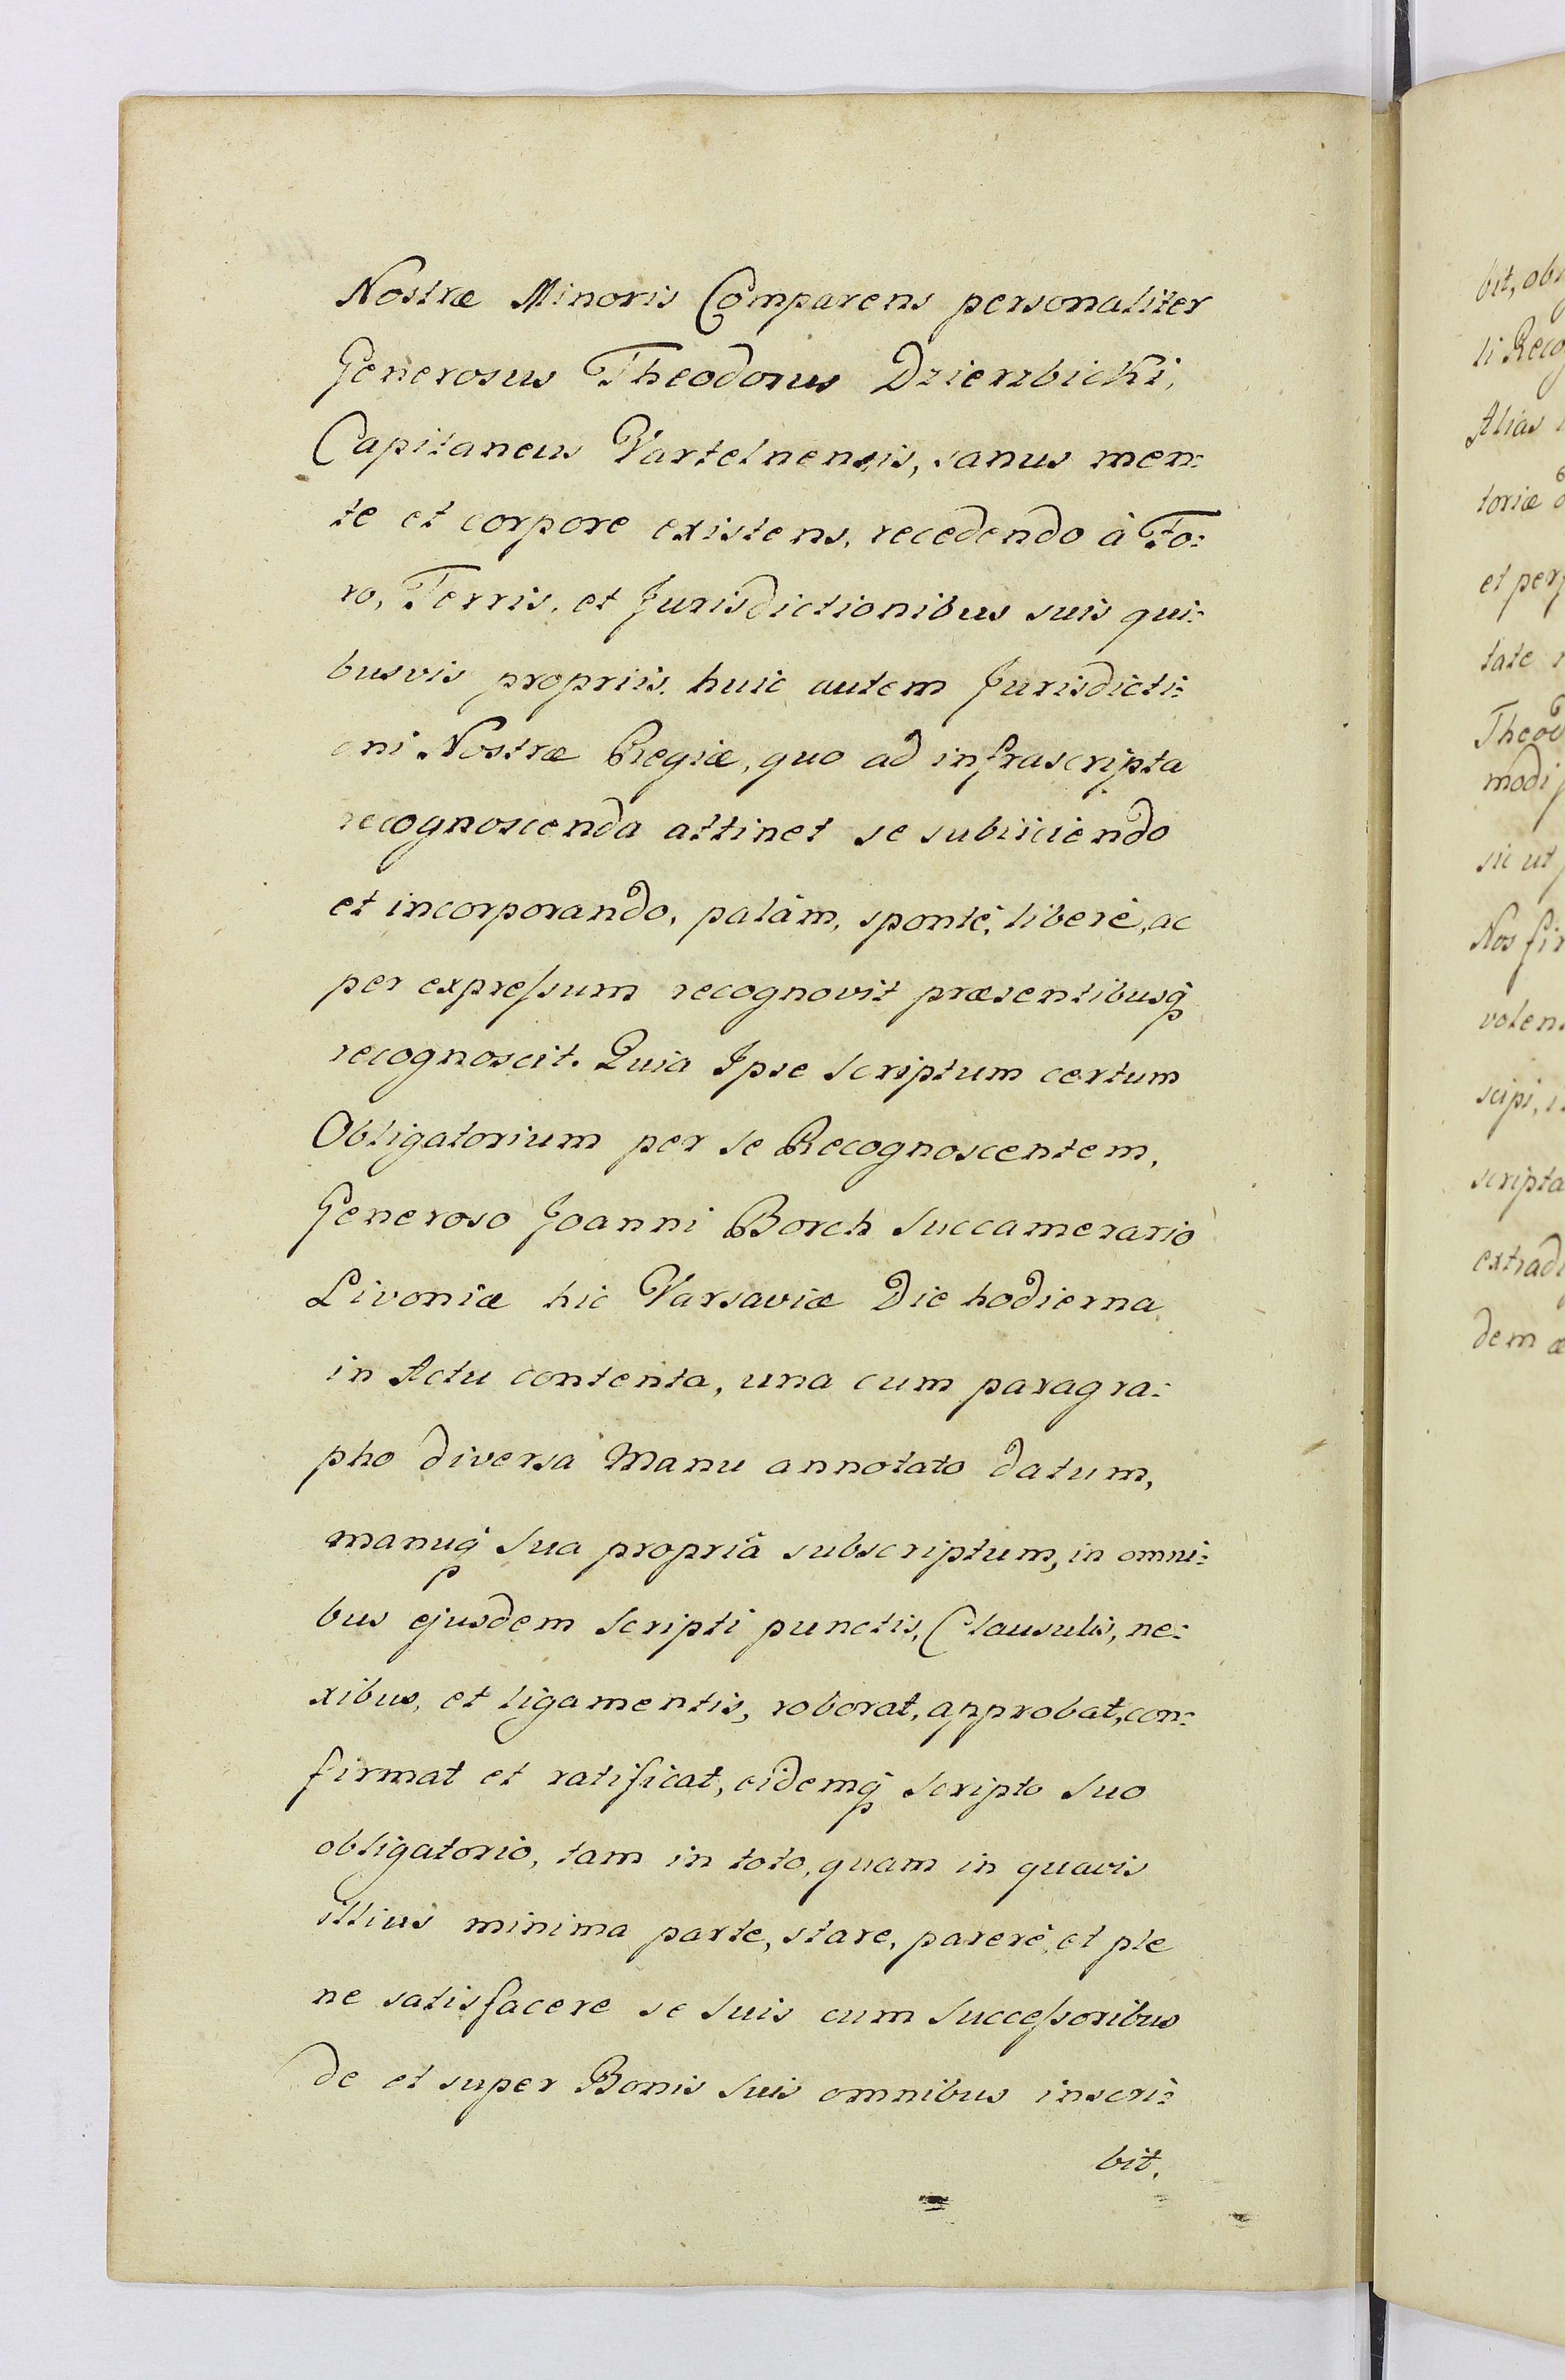 Nostræ Minoris Comparens personaliter
Generosus Theodorus Dzierzbicki,
Capitaneus Vartelnensis, sanus men:
te et corpore existens, recedendo à Fo:
ro, Terris, et Jurisdictionibus suis qui:
busvis propriis, huic autem Jurisdicti:
oni Nostræ Regiæ, quo ad infrascripta
recognoscenda attinet se subiiciendo
et incorporando, palàm, spontè, liberè, ac
per expreſsum recognovit præsentibusq̃
recognoscit. Quia Ipse Scriptum certum
Obligatorium per se Recognoscentem,
Generoso Joanni Borch Succamerario
Livoniæ hic Varsaviæ Die hodierna
in Actu contenta, una cum paragra:
pho diversa Manu annotato datum,
manuq̃ Sua propriâ subscriptum, in omni:
bus ejusdem Scripti punctis, Clausulis, ne:
xibus, et ligamentis, roborat, approbat, con:
firmat et ratificat, eidemq̃ Scripto Suo
obligatorio, tam in toto, quam in quavis
illius minima parte, stare, parere, et ple
ne satisfacere se Suis cum Succeſsoribus
de et super Bonis Suis omnibus inscri:
bit,
bit, ob
li Reco
Alias
toriæ
et per
tate
Theod
modi
sic ut
Nos fir
volen
scipi,
scripta
extrad
dem